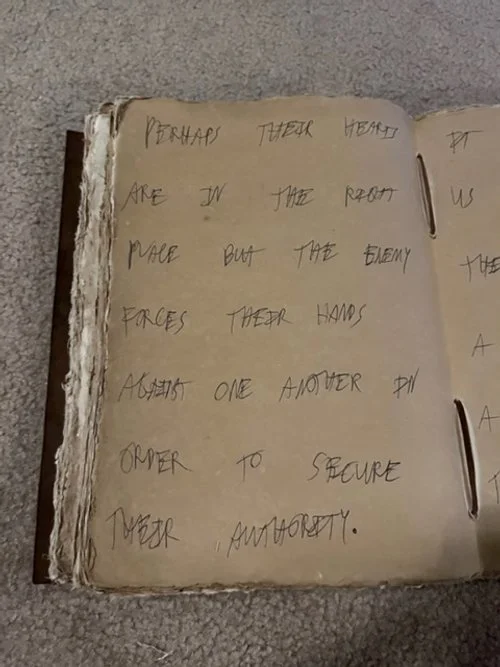 PERHAPS THEIR HEARTS
ARE IN THE RIGHT
PLACE BUT THE ENEMY
FORCES THEIR HANDS
AGAINST ONE ANOTHER IN
ORDER TO SECURE
THEIR AUTHORITY.
IT
US
THE
A
A
T